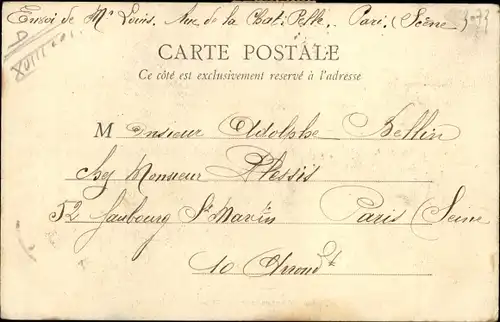 Envoi de Mr Louis. Rue de la Chat. Pelle. Pari. (Seine)
CARTE POSTALE
Ce côté est exclusivement reservé à l'adresse
Monsieur Adolphe Bellin
chez Monsieur Plessis
52 faubourg St Martin Paris (Seine
10 Arrondt